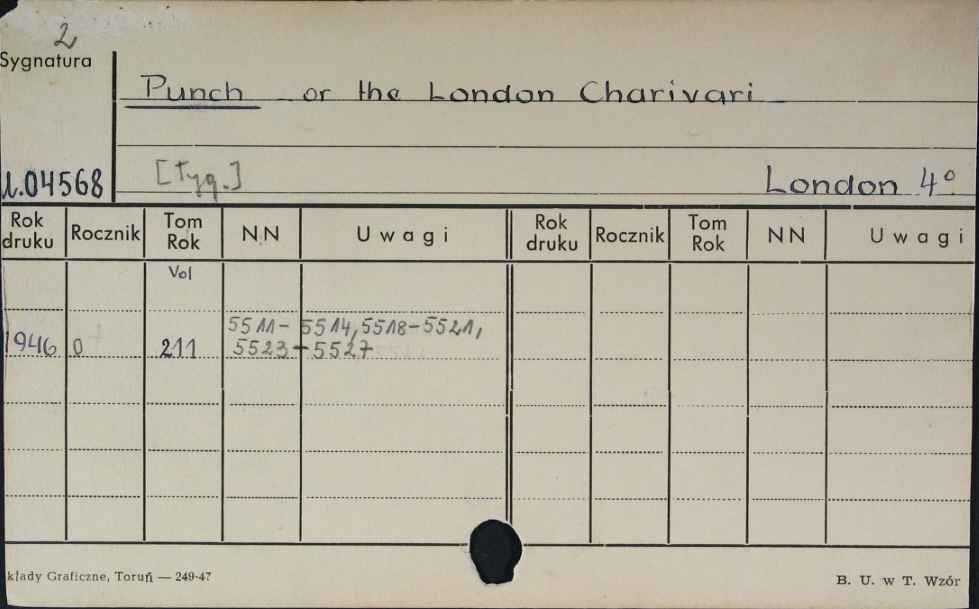 2
Sygnatura
Punch or the London Charivari
[Tyg.]
.04568
London 4°
Rok druku Rocznik Tom Rok NN Uwagi Rok druku Rocznik Tom Rok NN Uwagi
Vol
5511- 5514, 5518-5521,
1946 0 211 5523-5527
kłady Graficzne, Toruń — 249-47
B. U. w T. Wzór